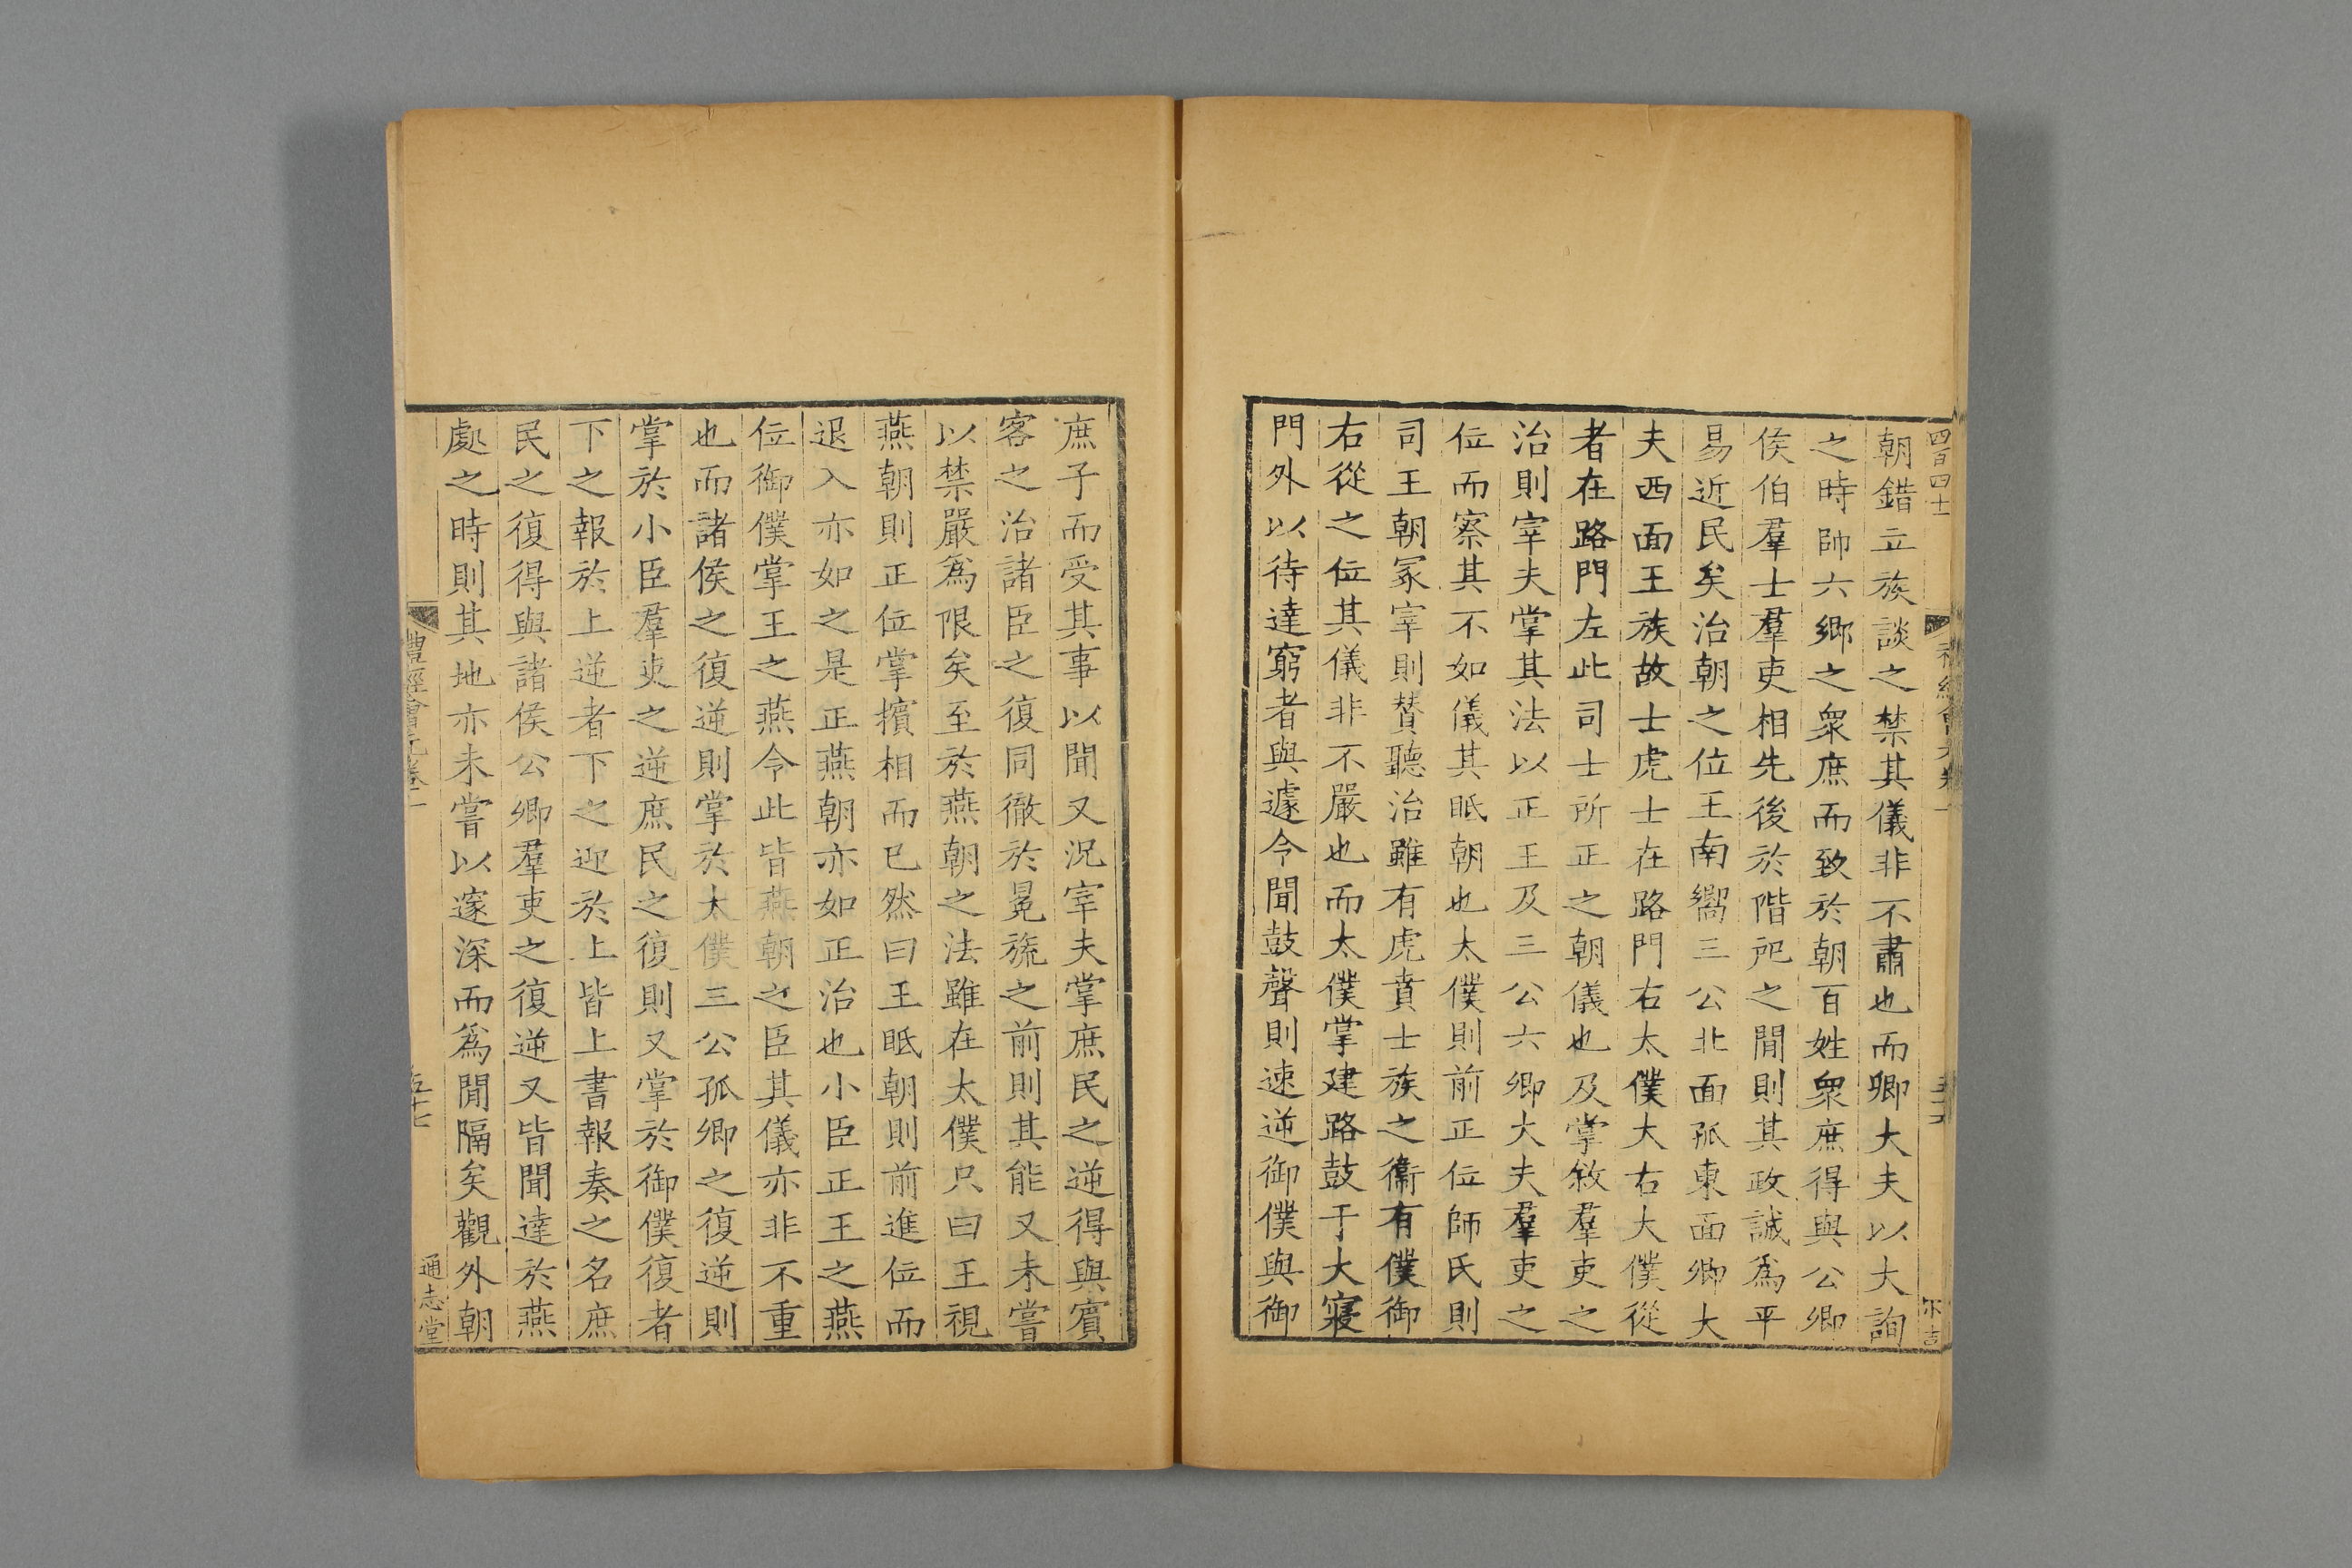 四百四十
朝錯立族談之禁其儀非不肅也而卿大夫以大詢
之時帥六鄉之衆庶而致於朝百姓衆庶得與公卿
侯伯羣士羣吏相先後於階戺之閒則其政誠爲平
易近民矣治朝之位王南嚮三公北面孤東面卿大
夫西面王族故士虎士在路門右太僕大右大僕從
者在路門左此司士所正之朝儀也及掌敘羣吏之
治則宰夫掌其法以正王及三公六卿大夫羣吏之
位而察其不如儀其眡朝也太僕則前正位師氏則
司王朝冡宰則賛聽治雖有虎賁士族之衞有僕御
右從之位其儀非不嚴也而太僕掌建路鼓于大寢
門外以待達窮者與遽令聞鼓聲則速逆御僕與御
庶子而受其事以聞又況宰夫掌庶民之逆得與賓
客之治諸臣之復同徹於冕旒之前則其能又未嘗
以禁嚴爲限矣至於燕朝之法雖在太僕只曰王視
燕朝則正位掌擯相而已然曰王眡朝則前進位而
退入亦如之是正燕朝亦如正治也小臣正王之燕
位御僕掌王之燕令此皆燕朝之臣其儀亦非不重
也而諸侯之復逆則掌於太僕三公孤卿之復逆則
掌於小臣羣吏之逆庶民之復則又掌於御僕復者
下之報於上逆者下之迎於上皆上書報奏之名庶
民之復得與諸侯公卿羣吏之復逆又皆聞達於燕
處之時則其地亦未嘗以邃深而爲閒隔矣觀外朝
禮經會元卷一
五十七
通志堂